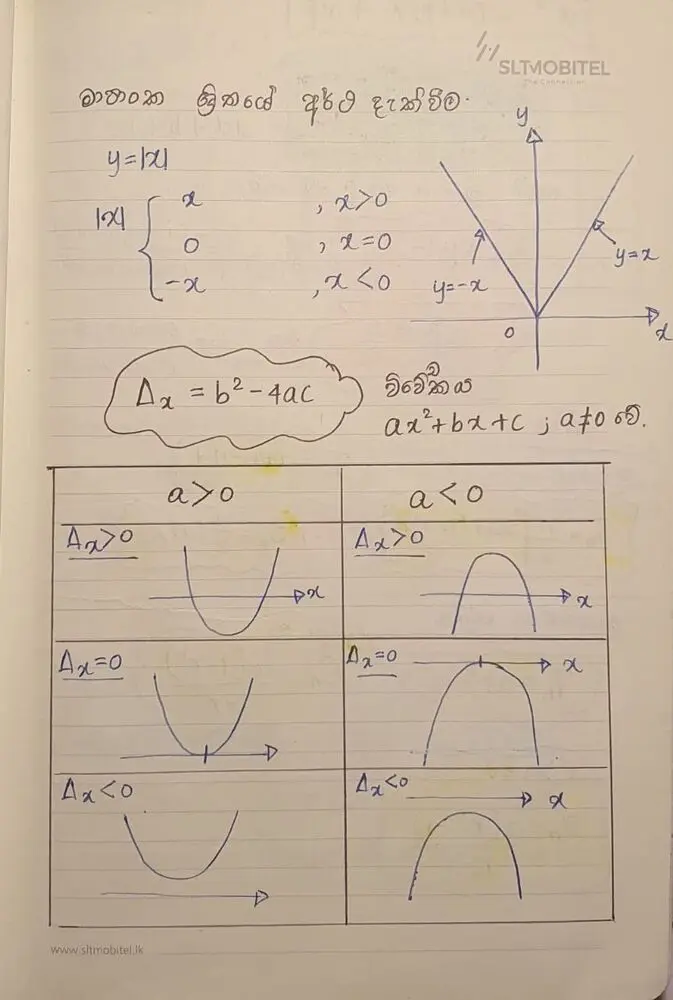 SLTMOBITEL
The Connection
මාපාංක ශ්‍රිතයේ අර්ථ දැක්වීම.
y=|x|
|x| { x , x>0
0 , x=0
-x , x<0
y
y=-x
y=x
0
x
Δx = b² - 4ac
විවේකය
ax²+bx+c ; a≠0 වේ.
a>0
a<0
Δx>0
x
Δx>0
x
Δx=0
Δx=0
x
Δx<0
Δx<0
x
www.sltmobitel.lk